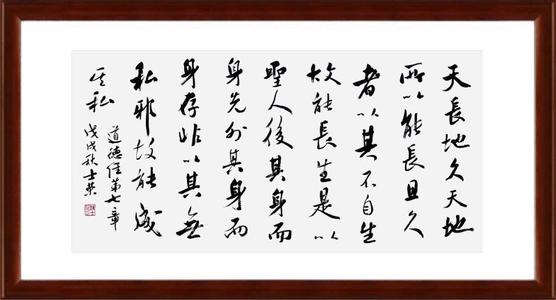 天長地久天地
所以能長且久
者以其不自生
故能長生是以
聖人後其身而
身先外其身而
身存非以其無
私邪故能成
其私
道德經第七章
戊戌秋士荣